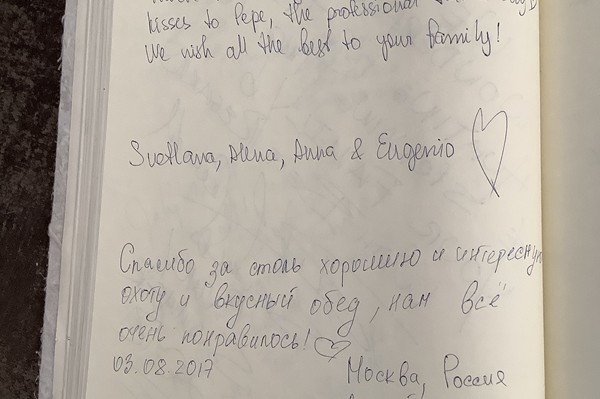 kisses to Pepe, the professional
We wish all the best to your family!
Svetlana, Alena, Anna & Eugenio
Спасибо за столь хорошую и интересную
охоту и вкусный обед, нам всё
очень понравилось!
03.08.2017
Москва, Россия